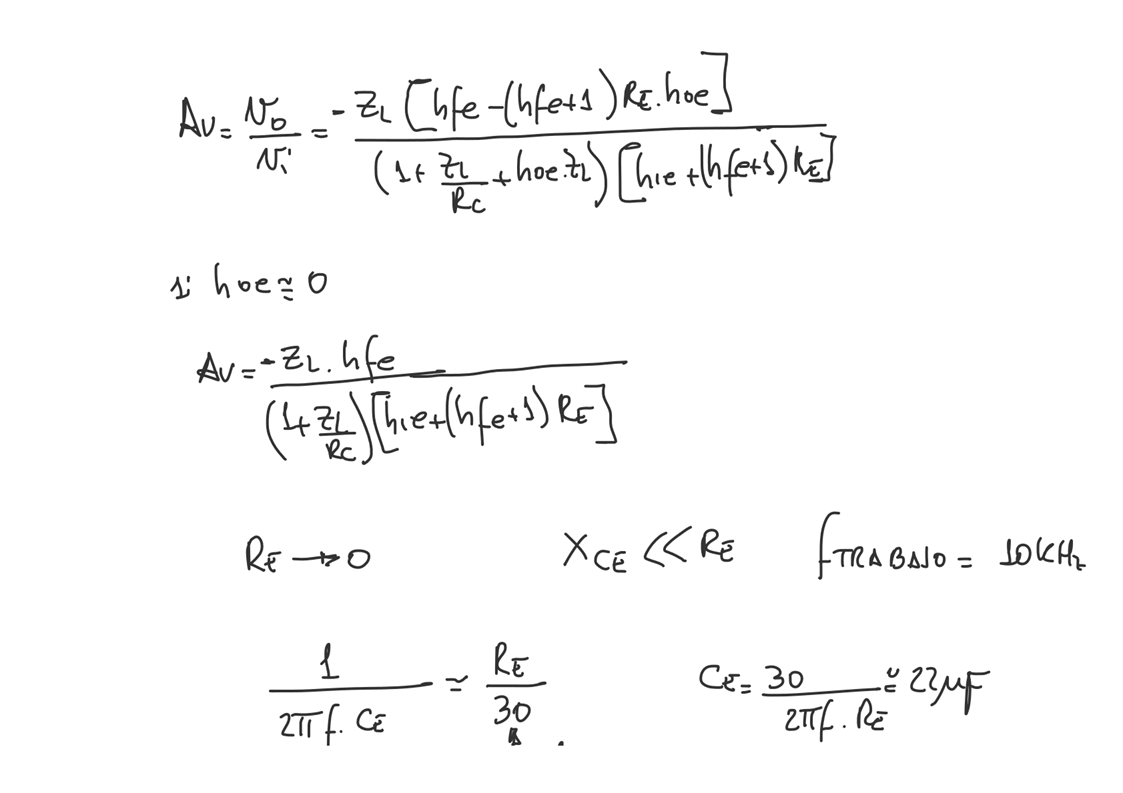 Av = Vo/Vi = - ZL [hfe - (hfe+1) RE . hoe] / (1 + ZL/RC + hoe.ZL) [hie + (hfe+1) RE]
si hoe ≅ 0
Av = - ZL . hfe / (1 + ZL/RC) [hie + (hfe+1) RE]
RE → 0 XCE << RE fTRABAJO = 10KHz
1 / 2πf. CE ≃ RE / 30 . CE = 30 / 2πf . RE ≅ 22µF